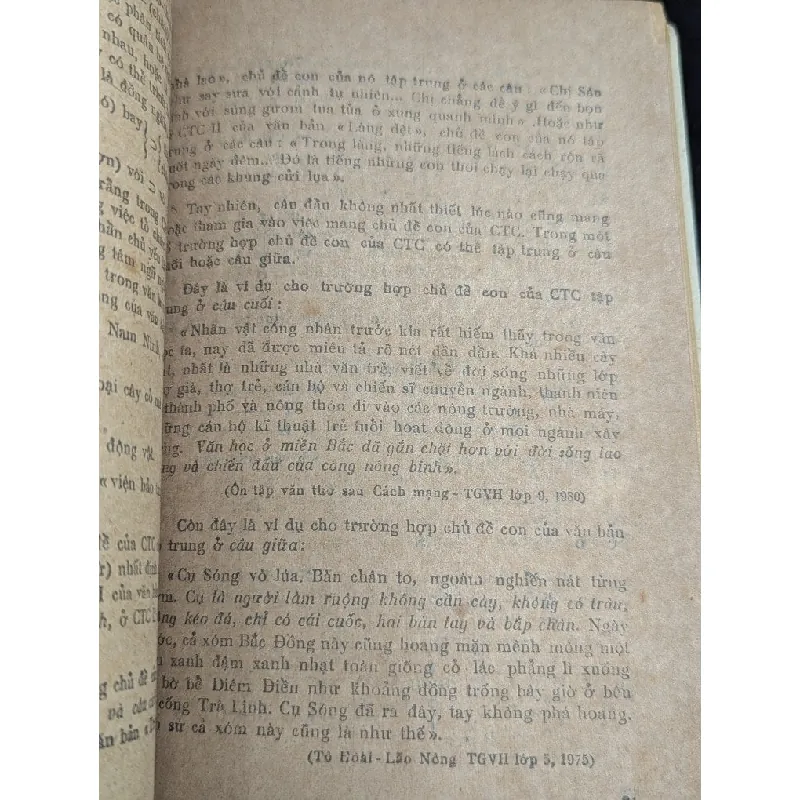 (chủ
phân tích
có quan hệ
nhau, hoặc
y có thể
là đồng ngh
ó) bay
ợn) với
rằng trong
g việc tổ ch
hần chủ yế
g tâm ngữ
trong văn
ng của văn
Nam Ninh
oại cây cỏ
động vật
« viện bảo t
ề của CTC
r) nhất đị
I của văn
h, ở CTC
g chủ đề
và câu c
ăn bản «
nhà lao», chủ đề con của nó tập trung ở các câu «Chị Sáu
như say sưa với cảnh tự nhiên... Chị chẳng để ý gì đến bọn
lính với súng gươm tua tủa ở xung quanh mình». Hoặc như
CTC II của văn bản «Làng dệt», chủ đề con của nó tập
trung ở các câu: «Trong làng, những tiếng lách cách rộn cả
suốt ngày đêm... Đó là tiếng những con thoi chạy lại chạy qua
trong các khung cửi lụa».
Tuy nhiên, câu đầu không nhất thiết lúc nào cũng mang
hoặc tham gia vào việc mang chủ đề con của CTC. Trong một
trường hợp chủ đề con của CTC có thể tập trung ở câu
cuối hoặc câu giữa.
Đây là ví dụ cho trường hợp chủ đề con của CTC tập
trung ở câu cuối:
«Nhân vật công nhân trước kia rất hiếm thấy trong văn
học ta, nay đã được miêu tả rõ nét dần dần. Khá nhiều cây
t, nhất là những nhà văn trẻ, viết về đời sống những lớp
y già, thợ trẻ, cán bộ và chiến sĩ chuyển ngành, thanh niên
thành phố và nông thôn đi vào các nông trường, nhà máy,
những cán bộ kĩ thuật trẻ tuổi hoạt động ở mọi ngành xây
ng. Văn học ở miền Bắc đã gắn chặt hơn với đời sống lao
ng và chiến đấu của công nông binh».
(Ôn tập văn thơ sau Cách mạng - TGVH lớp 9, 1980)
Còn đây là ví dụ cho trường hợp chủ đề con của văn bản
trung ở câu giữa:
«Cụ Sóng vỡ lúa. Bàn chân to, ngoàm nghiến nát từng
m. Cụ là người làm ruộng không cần cày, không có trâu,
ng kéo đá, chỉ có cái cuốc, hai bàn tay và bắp chân. Ngày
ớc, cả xóm Bắc Đồng này cũng hoang mặn mênh mông một
xanh đậm xanh nhạt toàn giống cỏ lác phẳng lì xuống
bờ bể Diêm Điền như khoảng đồng trống bây giờ ở bên
cống Trà Linh. Cụ Sóng đã ra đây, tay không phá hoang.
sư cả xóm này cũng là như thế».
(Tô Hoài - Lão Nông TGVH lớp 5, 1975)